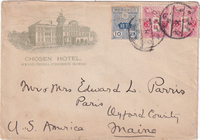 CHOSEN HOTEL
Mrs Mrs Edward L. Parris
Paris
Oxford County
Maine
U. S. America